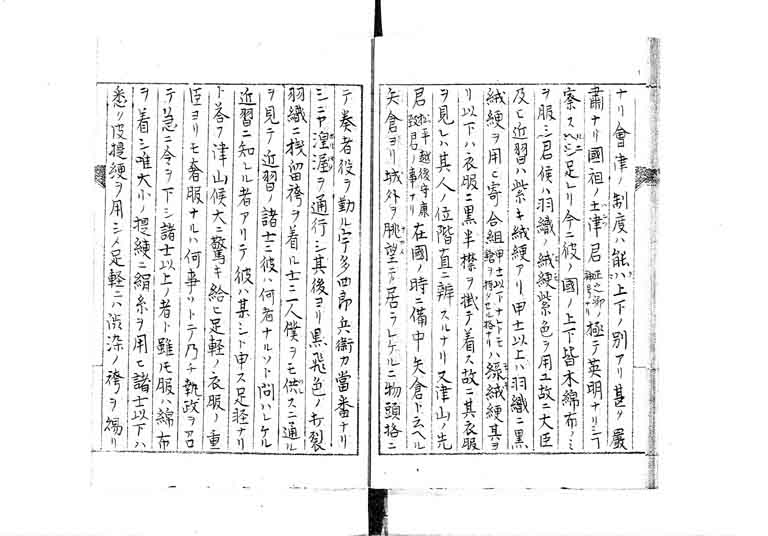 ナリ會津ノ制度ハ能ハ上下ノ別アリ甚タ嚴
肅ナリ國祖ノ土津君正之卿ノ極テ英明ナリシヿ
察スルニ足レリ今ニ彼ノ國ノ上下皆木綿布ノミ
ヲ服シ君侯ハ羽織ノ絨綆紫色ヲ用ユ故ニ大臣
及ヒ近習ハ紫キ絨綆アリ甲士以上ハ羽織ニ黒
絨綆ヲ用ヒ寄合組甲士以下ナトモハ緑絨綆其ヨ
リ以下ハ衣服ニ黒半襟ヲ掛テ着ス故ニ其衣服
ヲ見レハ其人ノ位階直ニ辨スルナリ又津山ノ先
君松平越後守康ノ事ナリ在國ノ時ニ備中矢倉ト云ヘル
矢倉ヨリ城外ヲ眺望シテ居ラレケルニ物頭格ニ
テ奏者役ヲ勤ル宇多四郎兵衛カ當番ナリ
シニヤ湟渥ヲ通行シ其後ヨリ黒飛色ノ打裂
羽織ニ桟留袴ヲ着ル士一人僕ヲモ供スニ通ル
ヲ見テ近習ノ諸士ニ彼ハ何者ナルソト問ハレケル
近習ニ知レル者アリテ彼ハ某シト申ス足軽ナリ
ト答ヲ津山候大ニ驚キ給ヒ足軽ノ衣服ノ重
臣ヨリモ奢服ナルハ何事ソトテ乃チ執政ヲ召
テ急ニ令ヲ下シ諸士以上ノ者ト雖モ服ハ綿布
ヲ着シ唯大小ノ提練ニ絹糸ヲ用ヒ諸士以下ハ
悉ク皮提綆ヲ用シメ足軽ニハ渋染ノ袴ヲ賜リ